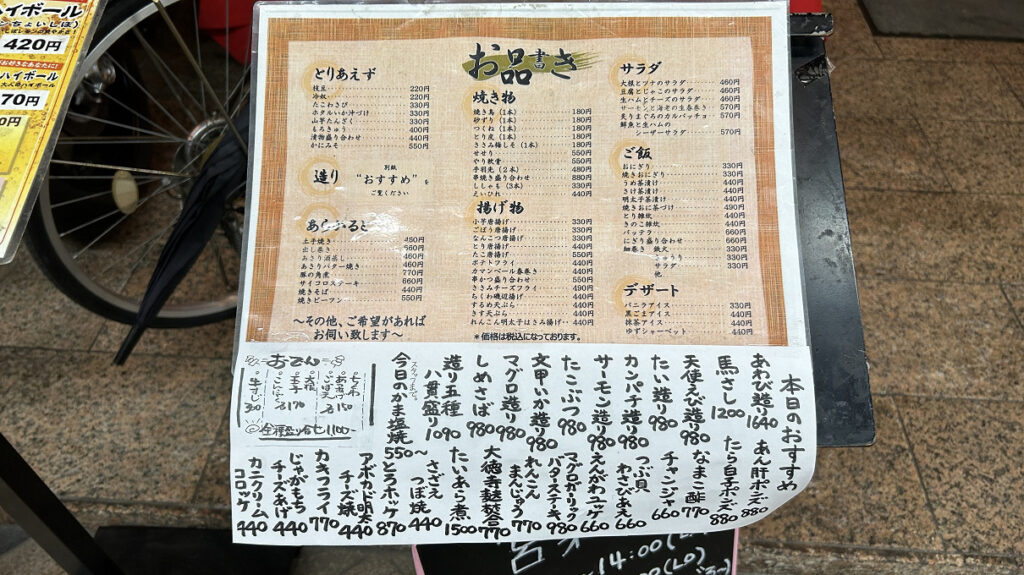 ハイボール
420円
ハイボール
70円
0円
お品書き
とりあえず
枝豆 220円
冷奴 220円
たこわさび 330円
ホタルいか沖漬け 330円
山芋たんざく 330円
もろきゅう 400円
漬物盛り合わせ 440円
かにみそ 550円
造り
別紙
“おすすめ”を
ご覧ください
あらかると
出し巻き 560円
あさり酒蒸し 440円
あさりバター焼き 460円
豚の角煮 770円
サイコロステーキ 660円
焼きそば 440円
焼きビーフン 550円
〜その他、ご希望があれば
お伺い致します〜
焼き物
焼き鳥（1本） 180円
砂ずり（1本） 180円
つくね（1本） 180円
とり皮（1本） 180円
ささみ梅しそ（1本） 180円
せせり 550円
やり軟骨 550円
手羽先（2本） 480円
串焼き盛り合わせ 880円
ししゃも（3本） 330円
えいひれ 440円
揚げ物
小芋唐揚げ 330円
ごぼう唐揚げ 330円
なんこつ唐揚げ 330円
とり唐揚げ 440円
たこ唐揚げ 550円
ポテトフライ 440円
カマンベール春巻き 440円
串かつ盛り合わせ 550円
ささみチーズフライ 490円
ちくわ磯辺揚げ 440円
するめ天ぷら 440円
きす天ぷら 440円
れんこん明太子はさみ揚げ 440円
＊価格は税込になっております。
サラダ
大根とツナのサラダ 460円
豆腐とじゃこのサラダ 460円
生ハムとチーズのサラダ 460円
サーモンと海老の生春巻き 570円
炙りまぐろのカルパッチョ 570円
鮮魚と生ハムの
シーザーサラダ 570円
ご飯
おにぎり 330円
焼きおにぎり 330円
うめ茶漬け 440円
さけ茶漬け 440円
明太子茶漬け 440円
焼きおに茶づけ 490円
とり雑炊 440円
きのこ雑炊 440円
バッテラ 660円
にぎり盛り合わせ 660円
細巻き 鉄火 330円
きゅうり 330円
サラダ 330円
他
デザート
バニラアイス 330円
黒ごまアイス 440円
抹茶アイス 440円
ゆずシャーベット 440円
本日のおすすめ
あわび造り 1640
馬さし 1200
天使えび造り 980
たい造り 980
カンパチ造り 980
サーモン造り 980
たこぶつ 980
文甲いか造り 980
マグロ造り 980
しめさば 980
造り五種
八貫盛り 1090
今日のかま塩焼 550〜
おでん
ちくわ
あつあげ
150
大根
玉子
170
牛すじ 330
全種盛り合せ 1100
あん肝ポン酢 880
たら白子ポン酢 880
なまこ酢 770
チャンジャ 440
つぶ貝
わさびあえ 660
えんがわユッケ 660
マグロガーリック
バターステーキ 980
れんこん
まんじゅう 770
大徳寺麩揚煮 770
たいあら煮 1500
さざえ
つぼ焼 440
とろホッケ 870
アボカド明太
チーズ焼 440
カキフライ 770
じゃがもち
チーズあげ 440
カニクリーム
コロッケ 440
14:00(L.O)